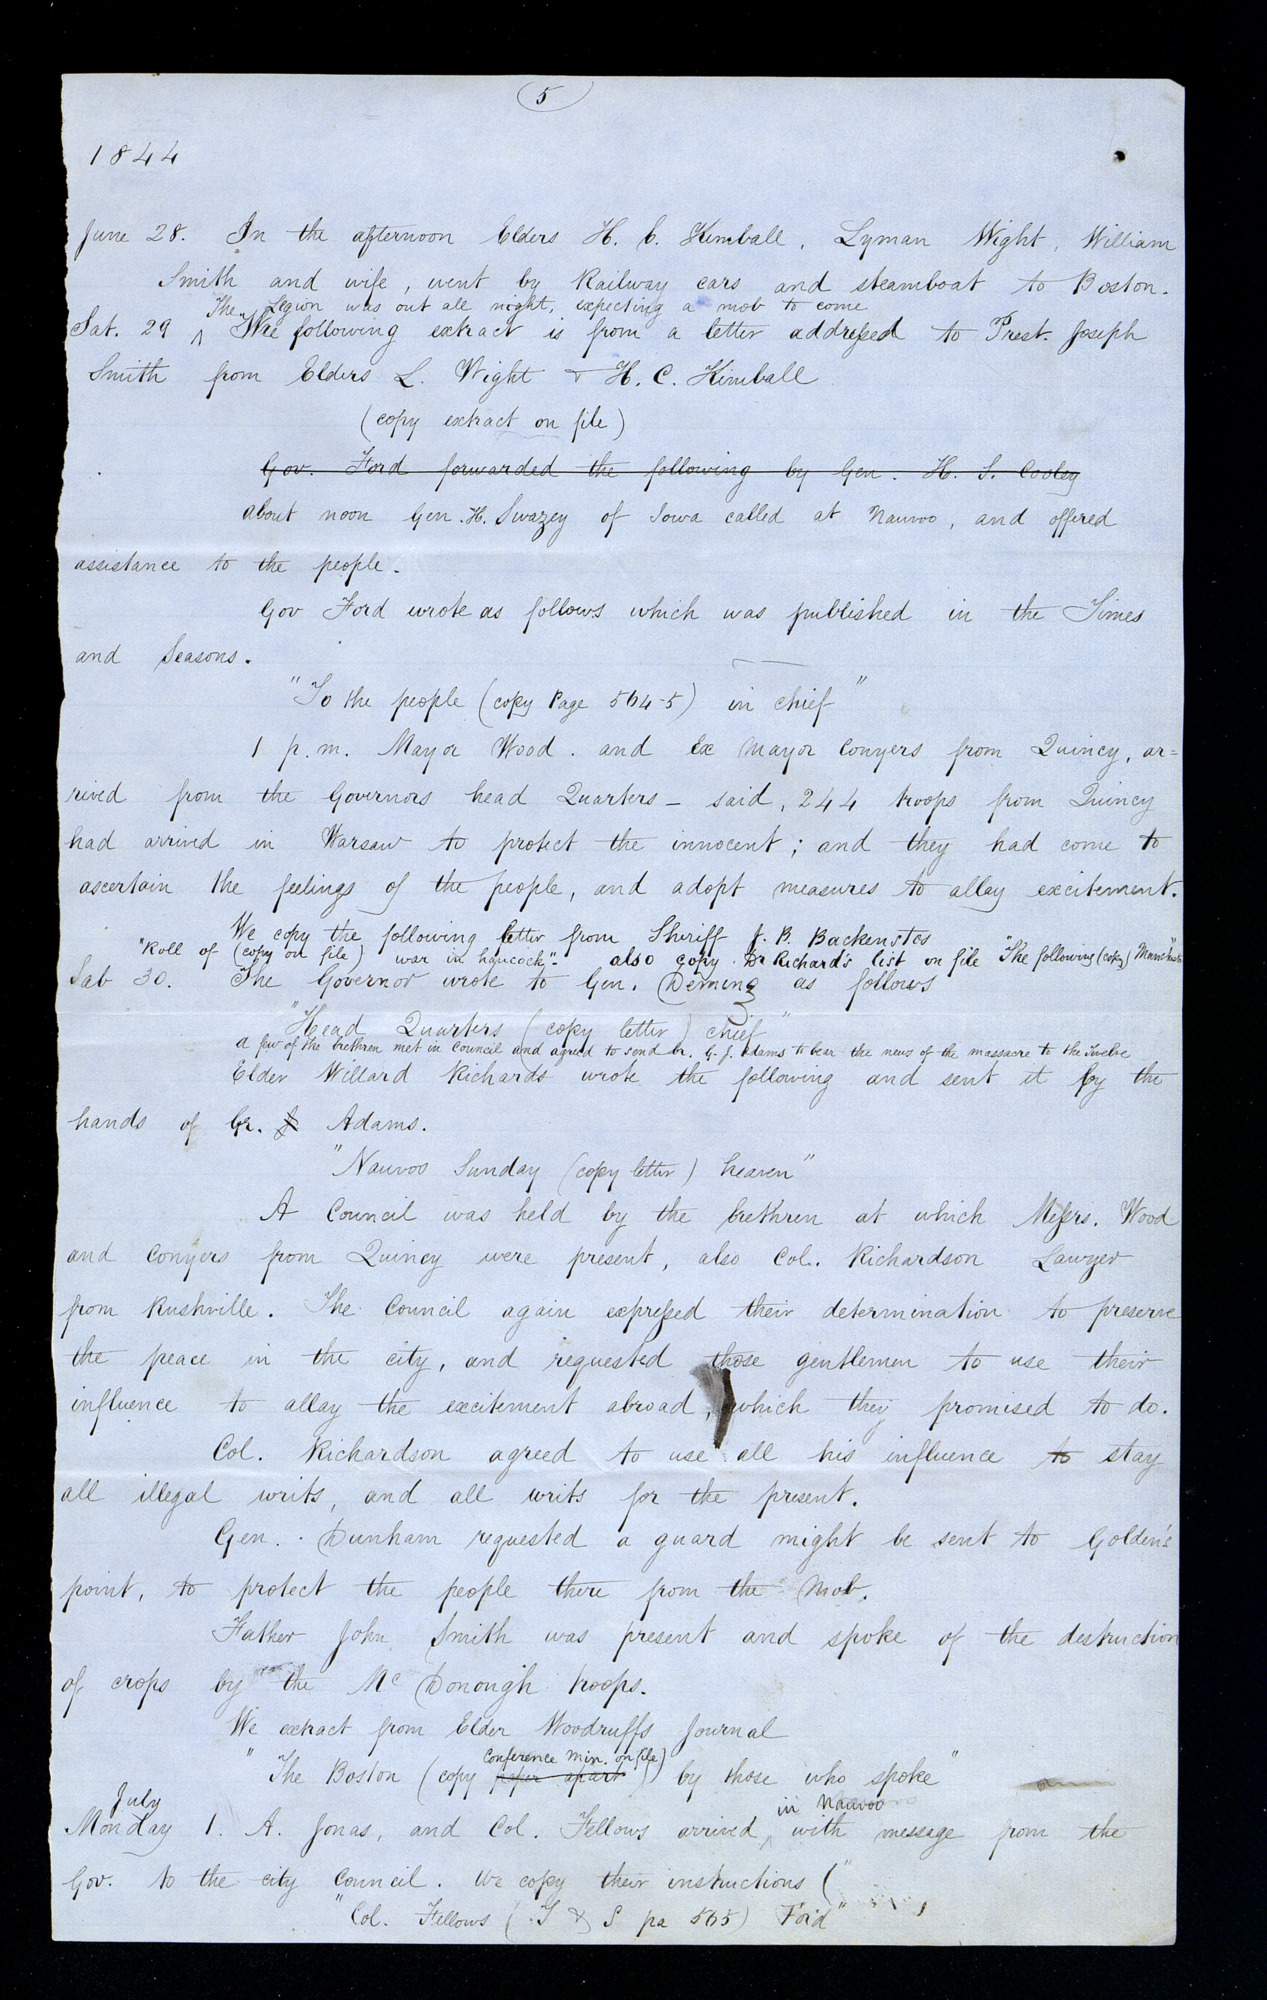 5
1844
June 28. In the afternoon Elders H. C. Kimball, Lyman Wight, William
Smith and wife, went by Railway cars and steamboat to Boston.
The Legion was out all night, expecting a mob to come
Sat. 29 ^ The following extract is from a letter addressed to Prest. Joseph
Smith from Elders L. Wight & H. C. Kimball
(copy extract on file)
Gov. Ford forwarded the following by Gen. H. S. Cooley
about noon Gen. H. Swazey of Iowa called at Nauvoo, and offered
assistance to the people.
Gov Ford wrote as follows which was published in the Times
and Seasons.
"To the people (copy Page 564-5) in chief"
1 p.m. Mayor Wood. and Ex Mayor Conyers from Quincy, ar=
rived from the Governors head Quarters — said, 244 troops from Quincy
had arrived in Warsaw to protect the innocent; and they had come to
ascertain the feelings of the people, and adopt measures to allay excitement.
We copy the following letter from Sheriff J. B. Backenstos
"Roll of (copy on file) war in hancock". also copy Dr Richard's list on file "The following (copy)
Sab 30. The Governor wrote to Gen. Deming as follows
"Head Quarters (copy letter) chief"
a few of the brethren met in council and agreed to send br. G. J. Adams to bear the news of the massacre to the Twelve
Elder Willard Richards wrote the following and sent it by the
hands of br. Adams.
"Nauvoo Sunday (copy letter) heaven"
A Council was held by the brethren at which Messrs. Wood
and Conyers from Quincy were present, also Col. Richardson Lawyer
from Rushville. The Council again expressed their determination to preserve
the peace in the city, and requested those gentlemen to use their
influence to allay the excitement abroad, which they promised to do.
Col. Richardson agreed to use all his influence to stay
all illegal writs, and all writs for the present.
Gen. Dunham requested a guard might be sent to Golden's
point, to protect the people there from the Mob.
Father John Smith was present and spoke of the destruction
of crops by the Mc Donough troops.
We extract from Elder Woodruffs Journal
Conference Min. on file)
"The Boston (copy paper apart) by those who spoke"
July in Nauvoo
Monday 1. A. Jonas, and Col. Fellows arrived ^ with message from the
Gov. to the city Council. We copy their instructions ("
"Col. Fellows (T & S pa 565) Ford"